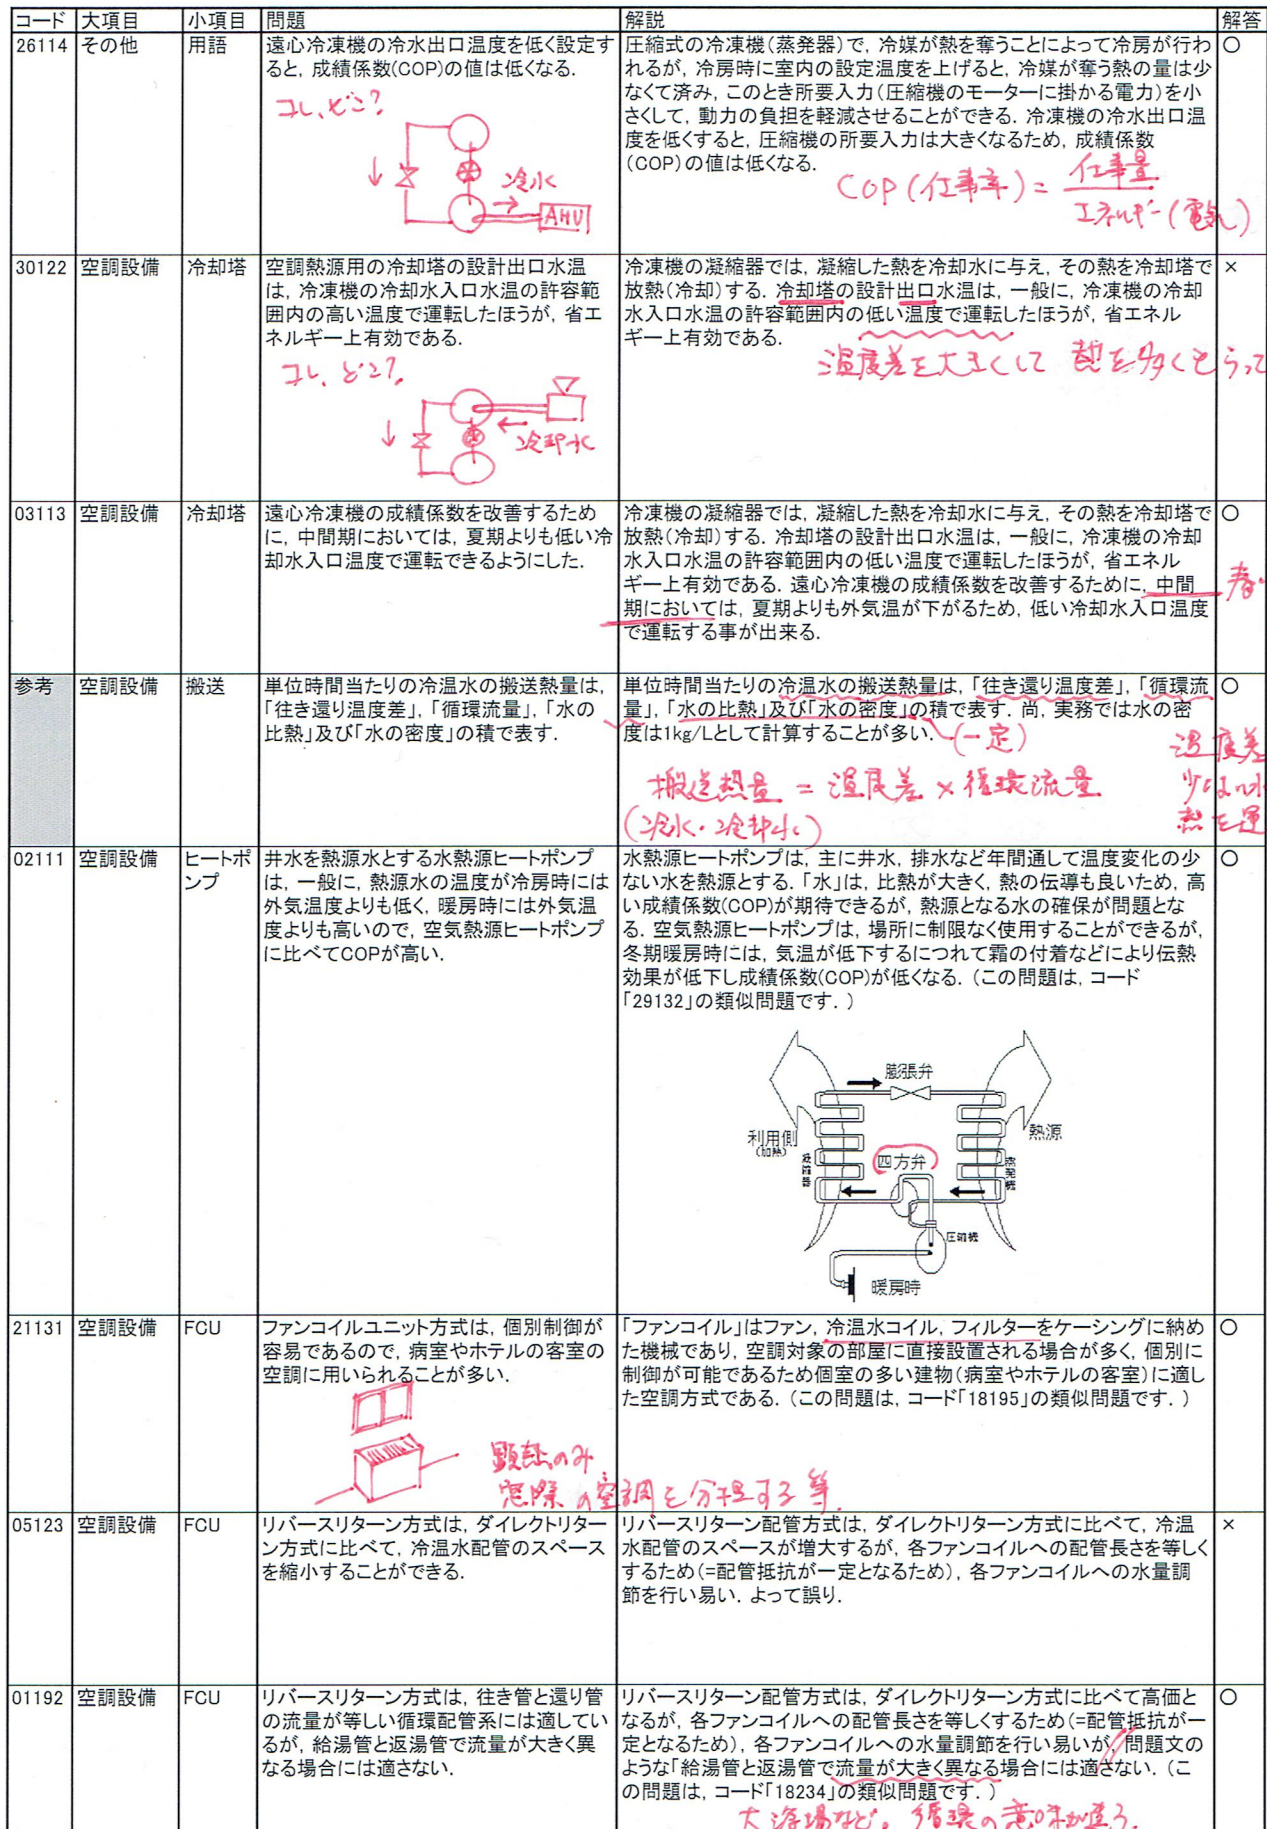 コード 大項目 小項目 問題 解説 解答
26114 その他 用語
遠心冷凍機の冷水出口温度を低く設定す
ると, 成績係数(COP)の値は低くなる.
コレ、どこ?
冷水
AHU
圧縮式の冷凍機(蒸発器)で, 冷媒が熱を奪うことによって冷房が行わ
れるが, 冷房時に室内の設定温度を上げると, 冷媒が奪う熱の量は少
なくて済み, このとき所要入力(圧縮機のモーターに掛かる電力)を小
さくして, 動力の負担を軽減させることができる. 冷凍機の冷水出口温
度を低くすると, 圧縮機の所要入力は大きくなるため, 成績係数
(COP)の値は低くなる.
○
COP(仕事率)= 仕事量
エネルギー(電気)
30122 空調設備 冷却塔
空調熱源用の冷却塔の設計出口水温
は, 冷凍機の冷却水入口水温の許容範
囲内の高い温度で運転したほうが, 省エ
ネルギー上有効である.
コレ、どこ?
冷却水
冷凍機の凝縮器では, 凝縮した熱を冷却水に与え, その熱を冷却塔で
放熱(冷却)する. 冷却塔の設計出口水温は, 一般に, 冷凍機の冷却
水入口水温の許容範囲内の低い温度で運転したほうが, 省エネル
ギー上有効である.
×
温度差を大きくして 熱を多くもらって
03113 空調設備 冷却塔
遠心冷凍機の成績係数を改善するため
に, 中間期においては, 夏期よりも低い冷
却水入口温度で運転できるようにした.
冷凍機の凝縮器では, 凝縮した熱を冷却水に与え, その熱を冷却塔で
放熱(冷却)する. 冷却塔の設計出口水温は, 一般に, 冷凍機の冷却
水入口水温の許容範囲内の低い温度で運転したほうが, 省エネル
ギー上有効である. 遠心冷凍機の成績係数を改善するために, 中間
期においては, 夏期よりも外気温が下がるため, 低い冷却水入口温度
で運転する事が出来る.
○
春
参考 空調設備 搬送
単位時間当たりの冷温水の搬送熱量は,
「往き還り温度差」, 「循環流量」, 「水の
比熱」及び「水の密度」の積で表す.
単位時間当たりの冷温水の搬送熱量は, 「往き還り温度差」, 「循環流
量」, 「水の比熱」及び「水の密度」の積で表す. 尚, 実務では水の密
度は1kg/Lとして計算することが多い.
○
(一定)
搬送熱量 = 温度差 × 循環流量
(冷水・冷却水)
温度差
少ない水
熱を運
02111 空調設備 ヒートポ
ンプ
井水を熱源水とする水熱源ヒートポンプ
は, 一般に, 熱源水の温度が冷房時には
外気温度よりも低く, 暖房時には外気温
度よりも高いので, 空気熱源ヒートポンプ
に比べてCOPが高い.
水熱源ヒートポンプは, 主に井水, 排水など年間通して温度変化の少
ない水を熱源とする. 「水」は, 比熱が大きく, 熱の伝導も良いため, 高
い成績係数(COP)が期待できるが, 熱源となる水の確保が問題とな
る. 空気熱源ヒートポンプは, 場所に制限なく使用することができるが,
冬期暖房時には, 気温が低下するにつれて霜の付着などにより伝熱
効果が低下し成績係数(COP)が低くなる. (この問題は, コード
「29132」の類似問題です. )
○
膨張弁
利用側
(加熱)
熱源
凝縮器
四方弁
蒸発機
圧縮機
暖房時
21131 空調設備 FCU
ファンコイルユニット方式は, 個別制御が
容易であるので, 病室やホテルの客室の
空調に用いられることが多い.
「ファンコイル」はファン, 冷温水コイル, フィルターをケーシングに納め
た機械であり, 空調対象の部屋に直接設置される場合が多く, 個別に
制御が可能であるため個室の多い建物(病室やホテルの客室)に適し
た空調方式である. (この問題は, コード「18195」の類似問題です. )
○
顕熱のみ
窓際の空調を分担する等.
05123 空調設備 FCU
リバースリターン方式は, ダイレクトリター
ン方式に比べて, 冷温水配管のスペース
を縮小することができる.
リバースリターン配管方式は, ダイレクトリターン方式に比べて, 冷温
水配管のスペースが増大するが, 各ファンコイルへの配管長さを等しく
するため(=配管抵抗が一定となるため), 各ファンコイルへの水量調
節を行い易い. よって誤り.
×
01192 空調設備 FCU
リバースリターン方式は, 往き管と還り管
の流量が等しい循環配管系には適してい
るが, 給湯管と返湯管で流量が大きく異
なる場合には適さない.
リバースリターン配管方式は, ダイレクトリターン方式に比べて高価と
なるが, 各ファンコイルへの配管長さを等しくするため(=配管抵抗が一
定となるため), 各ファンコイルへの水量調節を行い易いが, 問題文の
ような「給湯管と返湯管で流量が大きく異なる場合には適さない. (こ
の問題は, コード「18234」の類似問題です. )
○
大浴場など。循環の意味が違う.